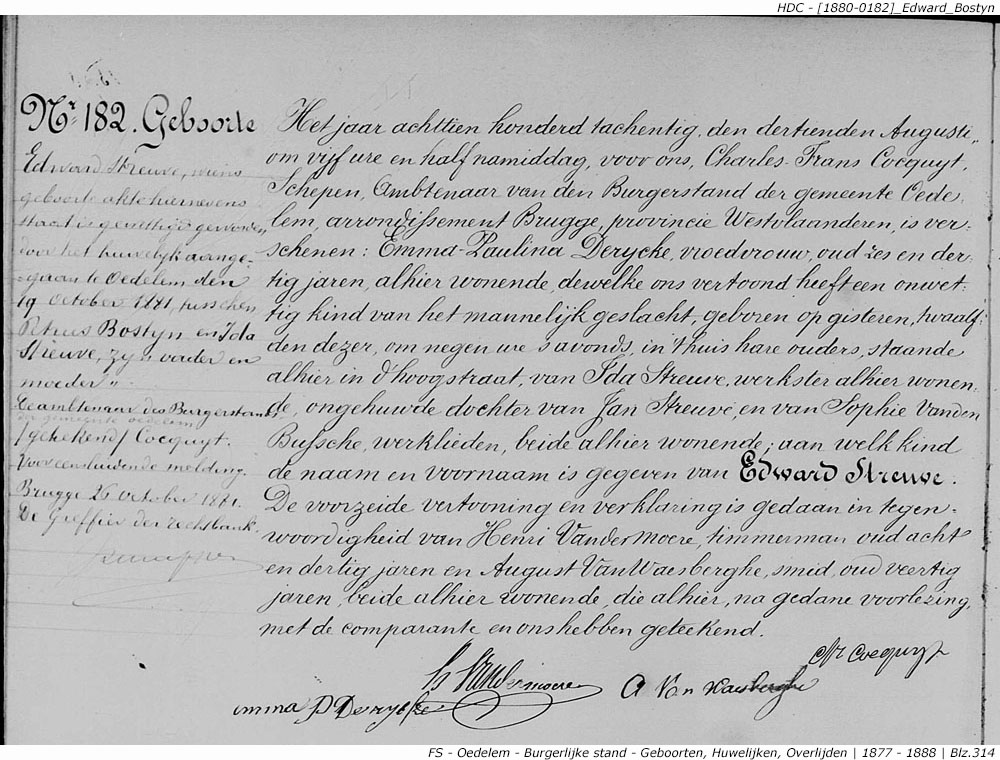 HDC - [1880-0182]_Edward_Bostyn
Nr 182. Geboorte
Edward Streuve, wiens
geboorte akte hiernevens
staat is gewettigd geworden
door het huwelijk aange-
gaan te Oedelem den
19 October 1881, tusschen
Petrus Bostyn en Ida
Streuve, zyn vader en
moeder".
De ambtenaar des Burgerstands
der gemeente Oedelem
/getekend/ Cocquyt.
Voor eensluidende melding.
Brugge 26 october 1881.
De Greffier der rechtbank.
Het jaar achttien honderd tachentig, den dertienden Augusti,
om vijf ure en half namiddag, voor ons, Charles-Frans Cocquyt,
Schepen, Ambtenaar van den Burgerstand der gemeente Oede-
lem, arrondissement Brugge, provincie Westvlaanderen, is ver-
schenen: Emma-Paulina Derycke, vroedvrouw, oud zes en der-
tig jaren, alhier wonende, dewelke ons vertoond heeft een onwet-
tig kind van het mannelijk geslacht, geboren op gisteren, twaalf-
den dezer, om negen ure s'avonds, in 't huis hare ouders, staande
alhier in d'hoogstraat, van Ida Streuve, werkster alhier wonen-
de, ongehuwde dochter van Jan Streuve, en van Sophie Vanden
Bussche, werklieden, beide alhier wonende; aan welk kind
de naam en voornaam is gegeven van Edward Streuve.
De voorzeide vertooning en verklaring is gedaan in tegen-
woordigheid van Henri Vandermoere, timmerman oud acht
en dertig jaren en August Van Waesberghe, smid, oud veertig
jaren, beide alhier wonende, die alhier, na gedane voorlezing,
met de comparante en ons hebben geteekend.
Cocquyt
H Vandermoere
A Van Waesberghe
emma P Derycke
FS - Oedelem - Burgerlijke stand - Geboorten, Huwelijken, Overlijden | 1877 - 1888 | Blz.314